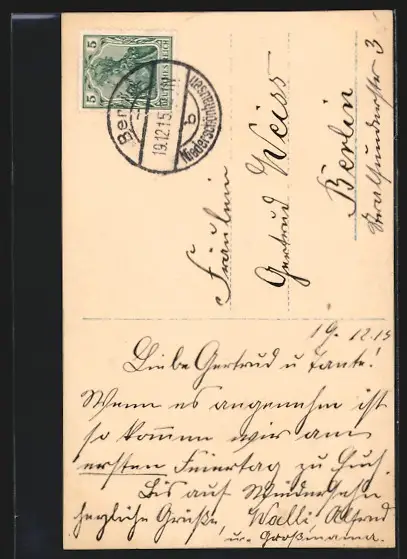 5
5
DEUTSCHES REICH
Berlin
19.12.15.
b
Niederschönhausen
Fräulein
Gertrud Weiss
Berlin
Stralsunderstr 3
19.12.15
Liebe Gertrud u Tante!
Wenn es angenehm ist
so kommen wir am
ersten Feiertag zu Euch.
Bis auf Wiedersehn
herzliche Grüße, Walli Alfred
u. Großmama.